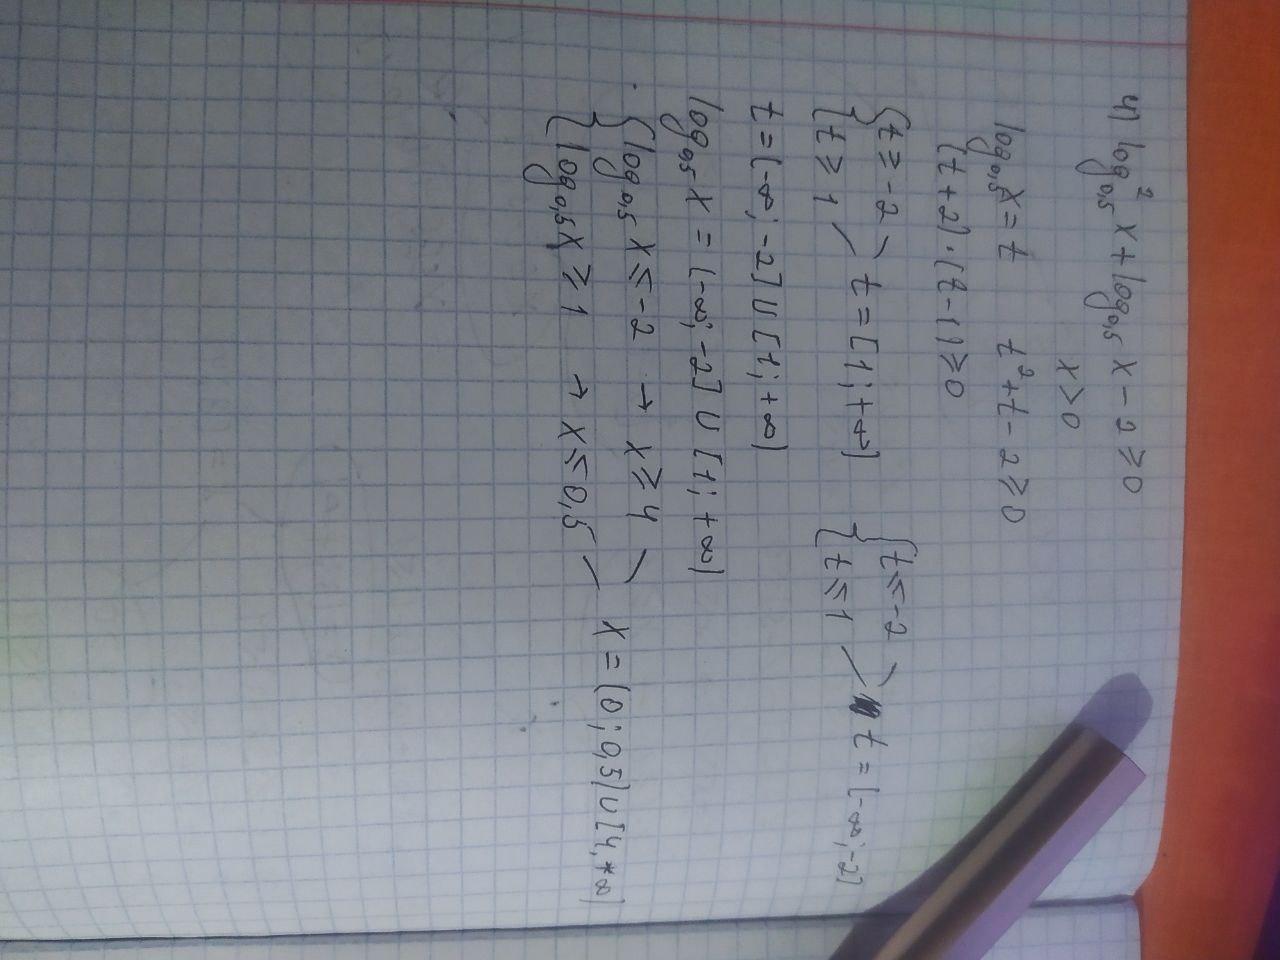 4) log²₀,₅ x + log₀,₅ x - 2 ⩾ 0
x > 0
log₀,₅ x = t t² + t - 2 ⩾ 0
(t + 2) · (t - 1) ⩾ 0
{ t ⩾ -2 { t ⩽ -2
t = [1; +∞) t = (-∞; -2]
{ t ⩾ 1 { t ⩽ 1
t = (-∞; -2] ∪ [1; +∞)
log₀,₅ x = (-∞; -2] ∪ [1; +∞)
{ log₀,₅ x ⩽ -2 → x ⩾ 4
x = (0; 0,5) ∪ [4, +∞)
{ log₀,₅ x ⩾ 1 → x ⩽ 0,5